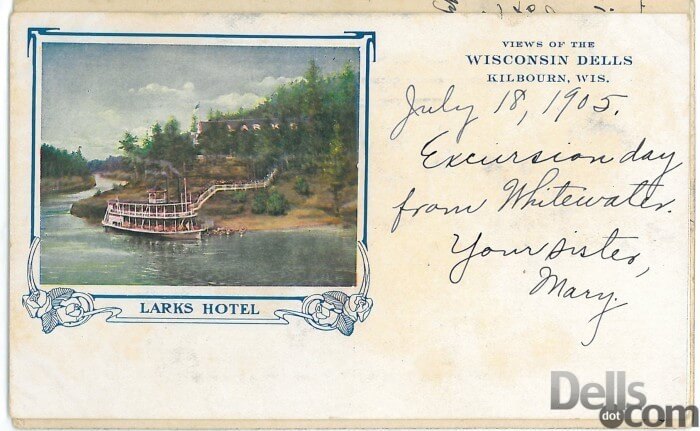 VIEWS OF THE
WISCONSIN DELLS
KILBOURN, WIS.
July 18, 1905.
Excursion day
from Whitewater.
Your sister,
Mary.
LARKS HOTEL
Dells.
dot
com